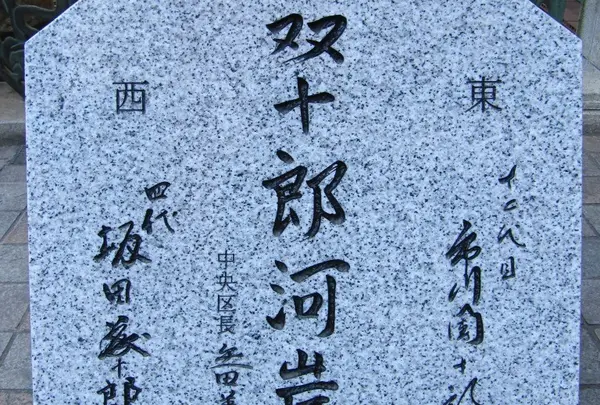 双十郎河岸
東
十二代目
市川團十郎
中央区長 矢田美
西
四代
坂田藤十郎